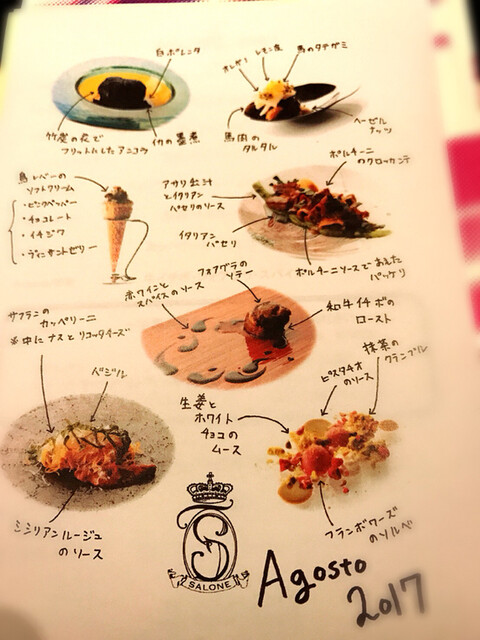 白ポレンタ
竹炭の衣で
フリットにしたアニコラ
イカの墨煮
オレガノ
レモン皮
馬のタテガミ
馬肉の
タルタル
ヘーゼル
ナッツ
鳥レバーの
ソフトクリーム
・ピンクペッパー
・チョコレート
・イチジク
・ヴィンサントゼリー
アサリ出汁
とイタリアン
パセリのソース
イタリアン
パセリ
ポルチーニ
のクロッカンテ
ポルチーニソースであえた
パッケリ
赤ワインと
スパイスのソース
フォアグラの
ソテー
和牛イチボの
ロースト
サフランの
カッペリーニ
※中にナスとリコッタチーズ
バジル
シシリアンルージュ
のソース
生姜と
ホワイト
チョコの
ムース
ピスタチオ
のソース
抹茶の
クランブル
フランボワーズ
のソルベ
S
SALONE
Agosto
2017